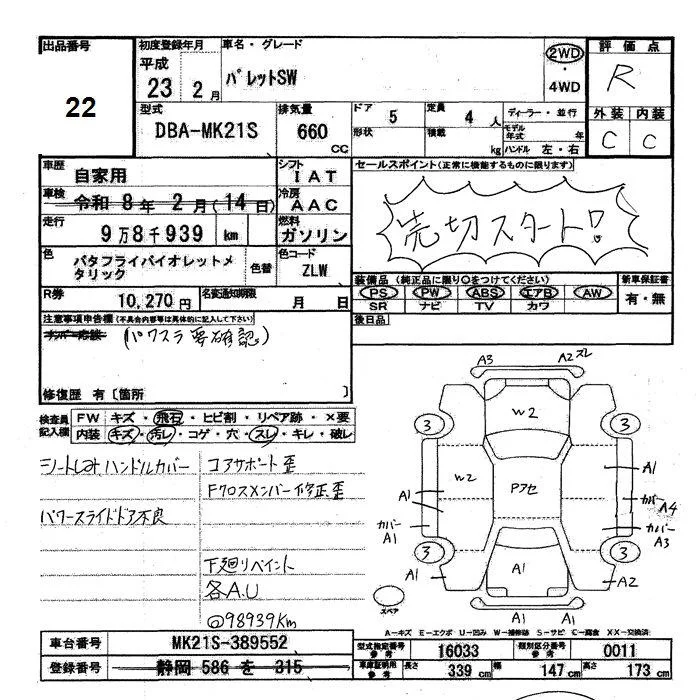 出品番号
22
初度登録年月
平成
23 2 月
車名・グレード
パレットSW
2WD
・
4WD
評価点
R
型式
DBA-MK21S
排気量
660
CC
ドア 5
定員 4 人
形状
積載 kg
ディーラー・並行
モデル年式 年
ハンドル 左・右
外装 内装
C C
車歴
自家用
シフト
IAT
セールスポイント(正常に機能するものに限ります)
売切スタート!
車検
令和 8年 2月(14日)
冷房
AAC
走行
9万8千939 km
燃料
ガソリン
色
バタフライバイオレットメタリック
色替
色コード
ZLW
装備品(純正品に限り○をつけてください)
PS PW ABS エアB AW
SR ナビ TV カワ
新車保証書
有・無
R券 10,270円
名変通知期限 月 日
後日品
注意事項申告欄(不具合内容等は具体的に記入して下さい)
(パワスラ要確認)
修復歴 有〔箇所 〕
検査員記入欄
FW キズ・飛石・ヒビ割・リペア跡・×要
内装 キズ・汚レ・コゲ・穴・スレ・キレ・破レ
シートしみ、ハンドルカバー
コアサポート歪
Fクロスメンバー修正歪
パワースライドドア不良
下廻リペイント
各A.U
@98939Km
A3
A2 スレ
W2
3
3
W2
Pアセ
A1
A1
カバー
A4
カバー
A1
カバー
A3
3
3
A1
A1
A2
スペア
A1
A1
A-キズ E-エクボ U-凹み W-補修跡 S-サビ C-腐食 XX-交換済
車台番号
MK21S-389552
型式指定番号 参考
16033
類別区分番号 参考
0011
登録番号
静岡 586 を 315
車庫証明用 参考
長さ 339 cm
幅 147 cm
高さ 173 cm